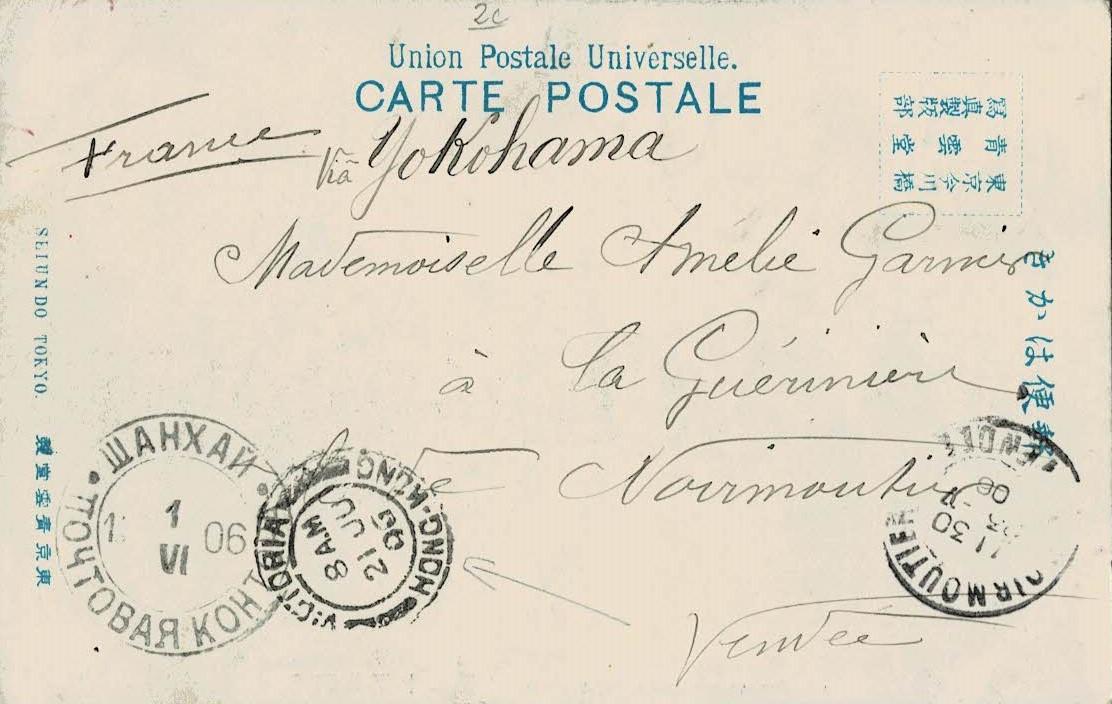 2c
Union Postale Universelle.
CARTE POSTALE
France
Via Yokohama
Mademoiselle Amélie Garnier
à la Guérinière
Noirmoutier
Vendée
東京今川橋
青雲堂
寫真製版部
きかは便郵
SEIUNDO TOKYO.
東京青雲堂製
ШАНХАЙ
ПОЧТОВАЯ КОНТ
1
VI
06
VICTORIA
HONG-KONG
8 A.M
21 JU
06
NOIRMOUTIER
VENDEE
11 30
06